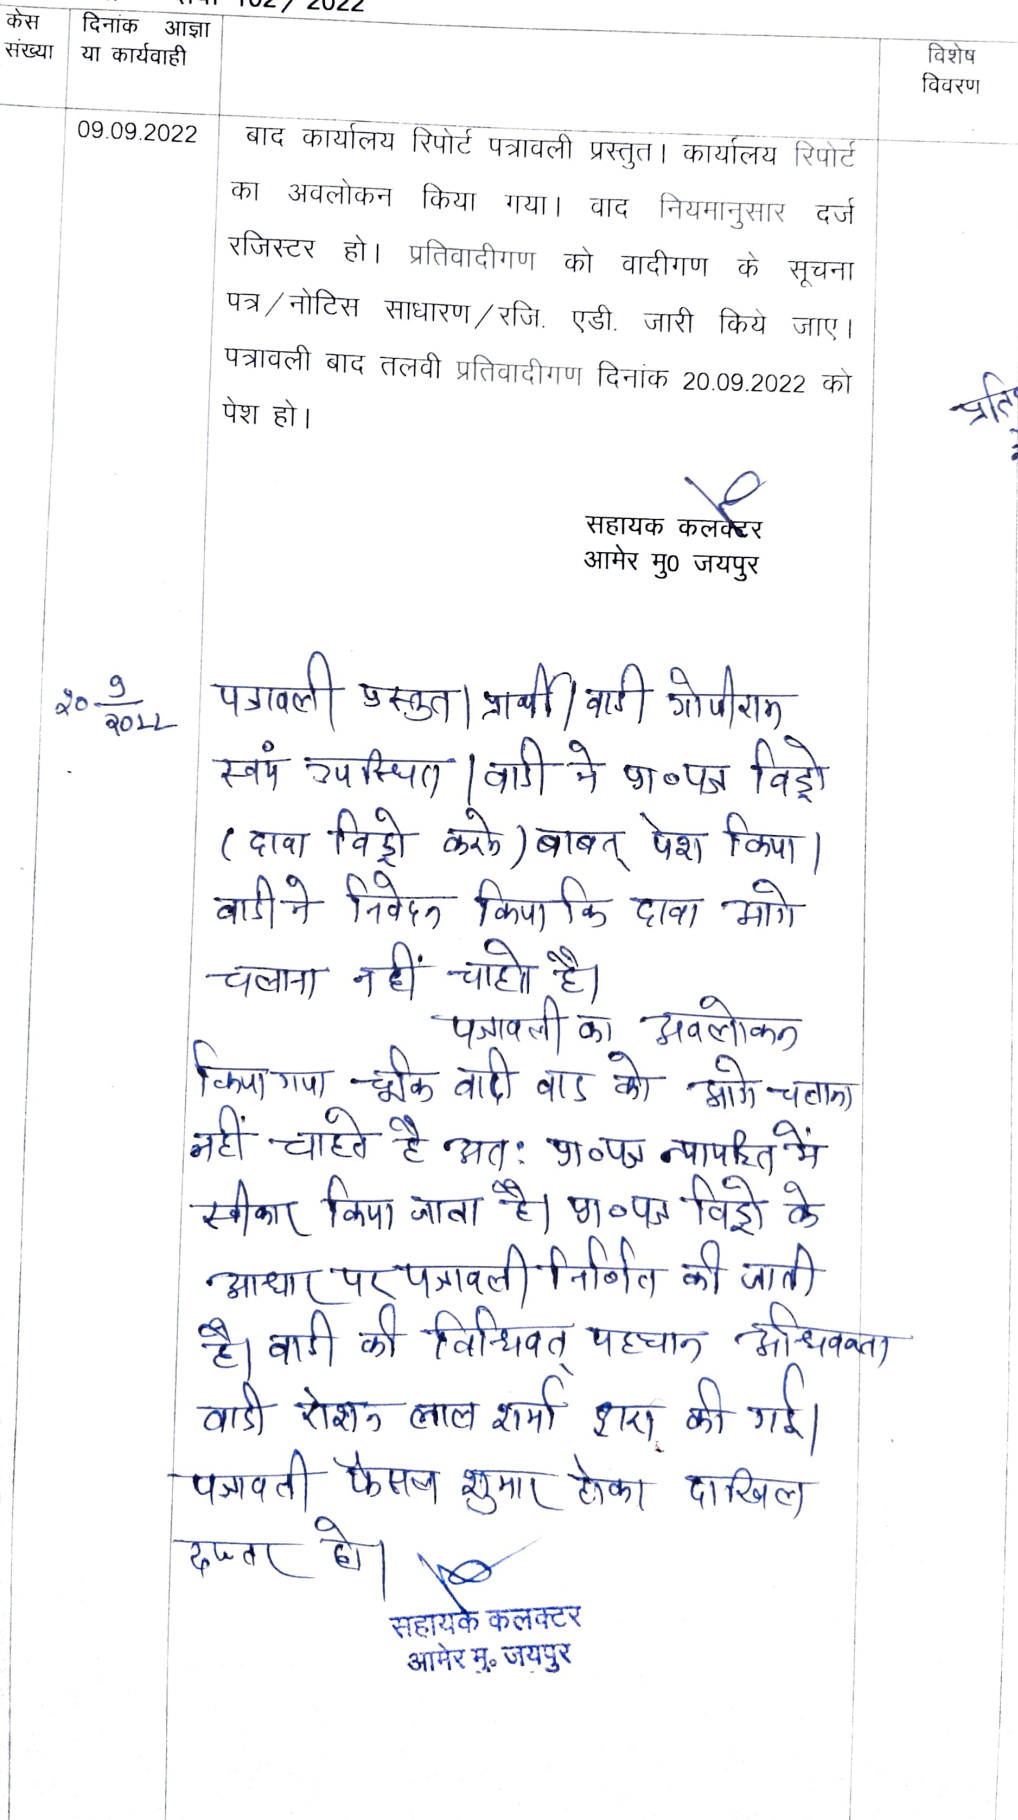 102/2022
केस दिनांक आज्ञा
संख्या या कार्यवाही
विशेष
विवरण
09.09.2022 बाद कार्यालय रिपोर्ट पत्रावली प्रस्तुत। कार्यालय रिपोर्ट
का अवलोकन किया गया। वाद नियमानुसार दर्ज
रजिस्टर हो। प्रतिवादीगण को वादीगण के सूचना
पत्र/नोटिस साधारण/रजि. एडी. जारी किये जाए।
पत्रावली बाद तलवी प्रतिवादीगण दिनांक 20.09.2022 को
पेश हो।
सहायक कलक्टर
आमेर मु0 जयपुर
20 9/2022 पत्रावली प्रस्तुत। प्रार्थी/वादी गोपीराम
स्वयं उपस्थित। वादी ने प्रा०पत्र विड्रो
(दावा विड्रो करने) बाबत् पेश किया।
वादी ने निवेदन किया कि दावा आगे
चलाना नहीं चाहते है।
पत्रावली का अवलोकन
किया गया चूंकि वादी वाद को आगे चलाना
नहीं चाहते है अतः प्रा०पत्र न्यायहित में
स्वीकार किया जाता है। प्रा०पत्र विड्रो के
आधार पर पत्रावली निर्णित की जाती
है। वादी की विधिवत् पहचान अधिवक्ता
वादी रोशन लाल शर्मा द्वारा की गई।
पत्रावली फैसल शुमार होकर दाखिल
दफ्तर हो।
सहायक कलक्टर
आमेर मु. जयपुर